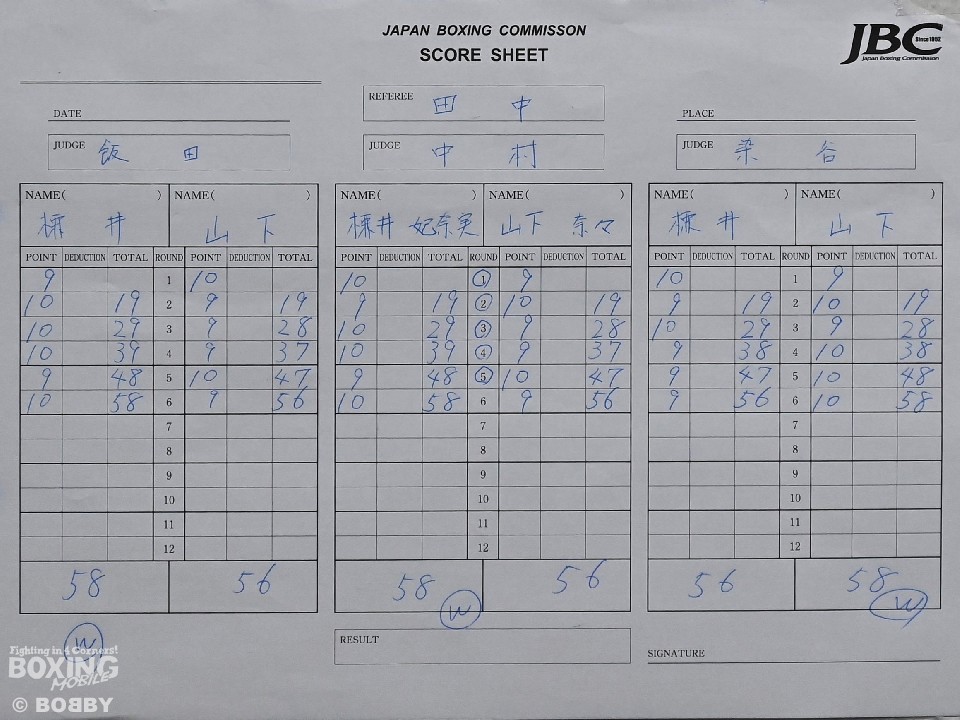 JAPAN BOXING COMMISSON
SCORE SHEET
JBC Since 1952
Japan Boxing Commission
REFEREE 田 中
DATE
PLACE
JUDGE 飯 田
JUDGE 中 村
JUDGE 染 谷
NAME( ) NAME( ) NAME( ) NAME( ) NAME( ) NAME( )
井 山 下 井 妃奈実 山下 奈々 井 山 下
POINT DEDUCTION TOTAL ROUND POINT DEDUCTION TOTAL POINT DEDUCTION TOTAL ROUND POINT DEDUCTION TOTAL POINT DEDUCTION TOTAL ROUND POINT DEDUCTION TOTAL
9 1 10 10 1 9 10 1 9
10 19 2 9 19 9 19 2 10 19 9 19 2 10 19
10 29 3 9 28 10 29 3 9 28 10 29 3 9 28
10 39 4 9 37 10 39 4 9 37 9 38 4 10 38
9 48 5 10 47 9 48 5 10 47 9 47 5 10 48
10 58 6 9 56 10 58 6 9 56 9 56 6 10 58
7 7 7
8 8 8
9 9 9
10 10 10
11 11 11
12 12 12
58 56 58 56 56 58
W W W
RESULT
SIGNATURE
Fighting in 4 Corners!
BOXING
MOBILE
© BOBBY